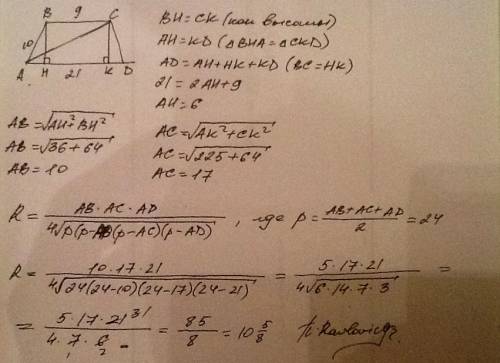 B 9 C
10
A H 21 K D
BH = CK (как высоты)
AH = KD (△BHA = △CKD)
AD = AH + HK + KD (BC = HK)
21 = 2AH + 9
AH = 6
AB = √(AH² + BH²)
AB = √(36 + 64)
AB = 10
AC = √(AK² + CK²)
AC = √(225 + 64)
AC = 17
R = AB · AC · AD / 4√(p(p-AB)(p-AC)(p-AD)), где p = (AB+AC+AD)/2 = 24
R = 10 · 17 · 21 / 4√(24(24-10)(24-17)(24-21)) = 5 · 17 · 21 / 4√(6 · 14 · 7 · 3) =
= 5 · 17 · 21 3 1 / 4 · 7 · 6 1 2 = 85/8 = 10 5/8